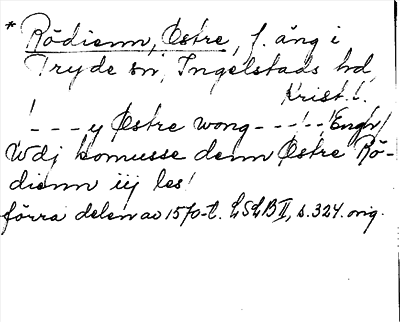 * Rödienn, Østre, f. äng i
Tryde sn, Ingelstads hd,
Krist. l.
! - - - y Østre wong - - - ! - - ! Engh /
Wdj komusse denn Østre Rö-
dienn iij les!
förra delen av 1570-t. LSLB II, s. 324. orig.